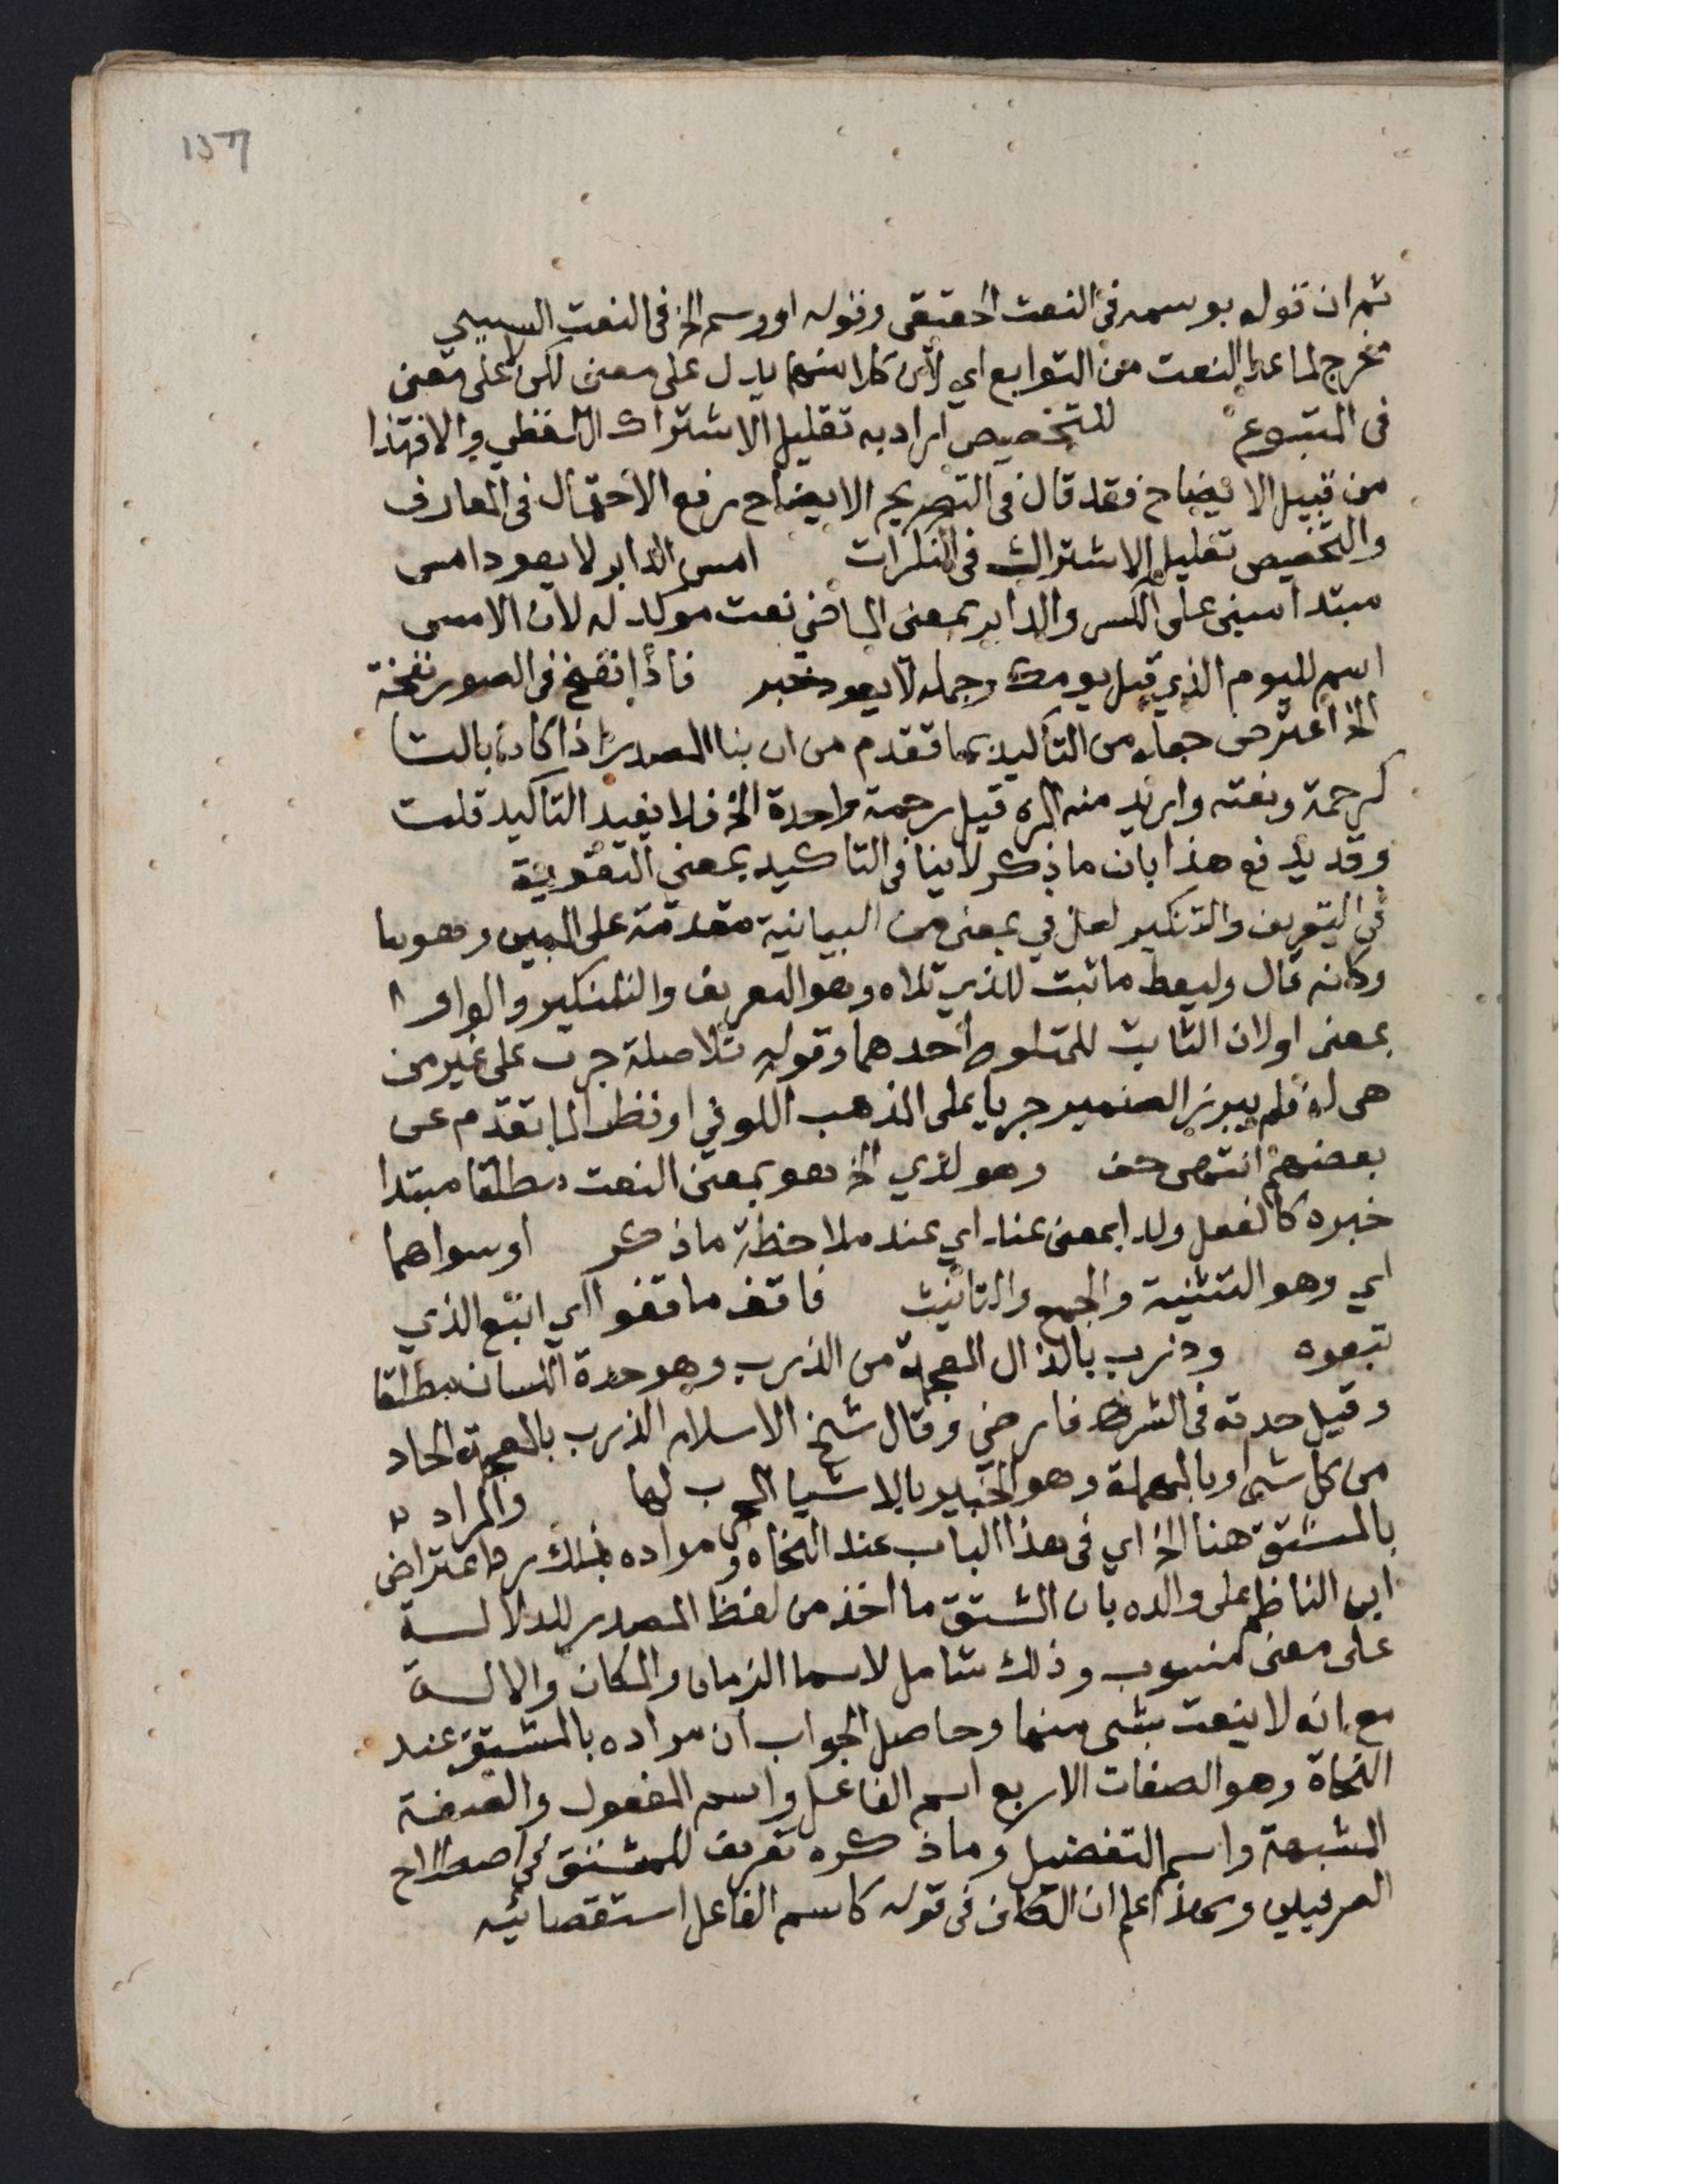 ثم ان قوله بوسمه فى النعت الحقيقى وقوله او وسم الخ فى النعت السببي
مخرج لما عدا النعت من التوابع اي لان كلا منها يدل على معنى لكن لا على معنى
فى المتبوع للتخصيص اراد به تقليل الاشتراك اللفظي والا فهذا
من قبيل الايضاح فقد قال فى التصريح الايضاح رفع الاحتمال فى المعارف
والتخصيص تقليل الاشتراك فى النكرات امس الدابر لا يعود امس
مبتدا مبنى على الكسر والدابر بمعنى الماضي نعت موكد له لان الامس
اسم لليوم الذي قبل يومك وجملة لا يعود خبر فاذا نفخ فى الصور نفخة
الخ اعترض جعله من التأكيد بما تقدم من ان بنا المصدر اذا كان بالتا
كرحمة ونعته واريد منه المره قيل رحمة واحدة الخ فلا يفيد التاكيد قلت
وقد يدفع هذا بان ما ذكر لا ينافى التاكيد بمعنى التقوية
في التعريف والتنكير لعل في بمعنى من البيانية مقدمة على المبين وهو ما
وكانه قال وليعط ما ثبت للذي تلاه وهو التعريف والتنكير والواو
بمعنى او لان الثابت للمتلو احدهما وقوله تلا صلة جرت على غير من
هى له فلم يبرز الضمير جريا على المذهب الكوفي او نظرا لما تقدم عن
بعضهم انتهى حف وهو لدي الخ هو بمعنى النعت مطلقا مبتدا
خبره كالفعل ولدا بمعنى عند اي عند ملاحظة ما ذكر او سواهما
اي وهو التثنية والجمع والتانيث فاقف ما قفوا اي اتبع الذي
تبعوه وذرب بالذال المعجمة من الذرب وهو حدة اللسان مطلقا
وقيل حدته فى الشر فارضي وقال شيخ الاسلام الذرب بالمعجمة الحاد
من كل شى او بالمهملة وهو الخبير بالاشيا المجرب لها والمراد
بالمشتق هنا الخ اي فى هذا الباب عند النحاه ومراده بذلك رد اعتراض
ابن الناظم على والده بان المشتق ما اخذ من لفظ المصدر للدلالة
على معنى منسوب وذلك شامل لاسما الزمان والمكان والالة
مع انه لا ينعت بشى منها وحاصل الجواب ان مراده بالمشتق عند
النحاة وهو الصفات الاربع اسم الفاعل واسم المفعول والصفة
المشبهة واسم التفضيل وما ذكره تعريف للمشتق في اصطلاح
الصرفيين وبهذا اعلم ان الكاف فى قوله كاسم الفاعل استقصائيه